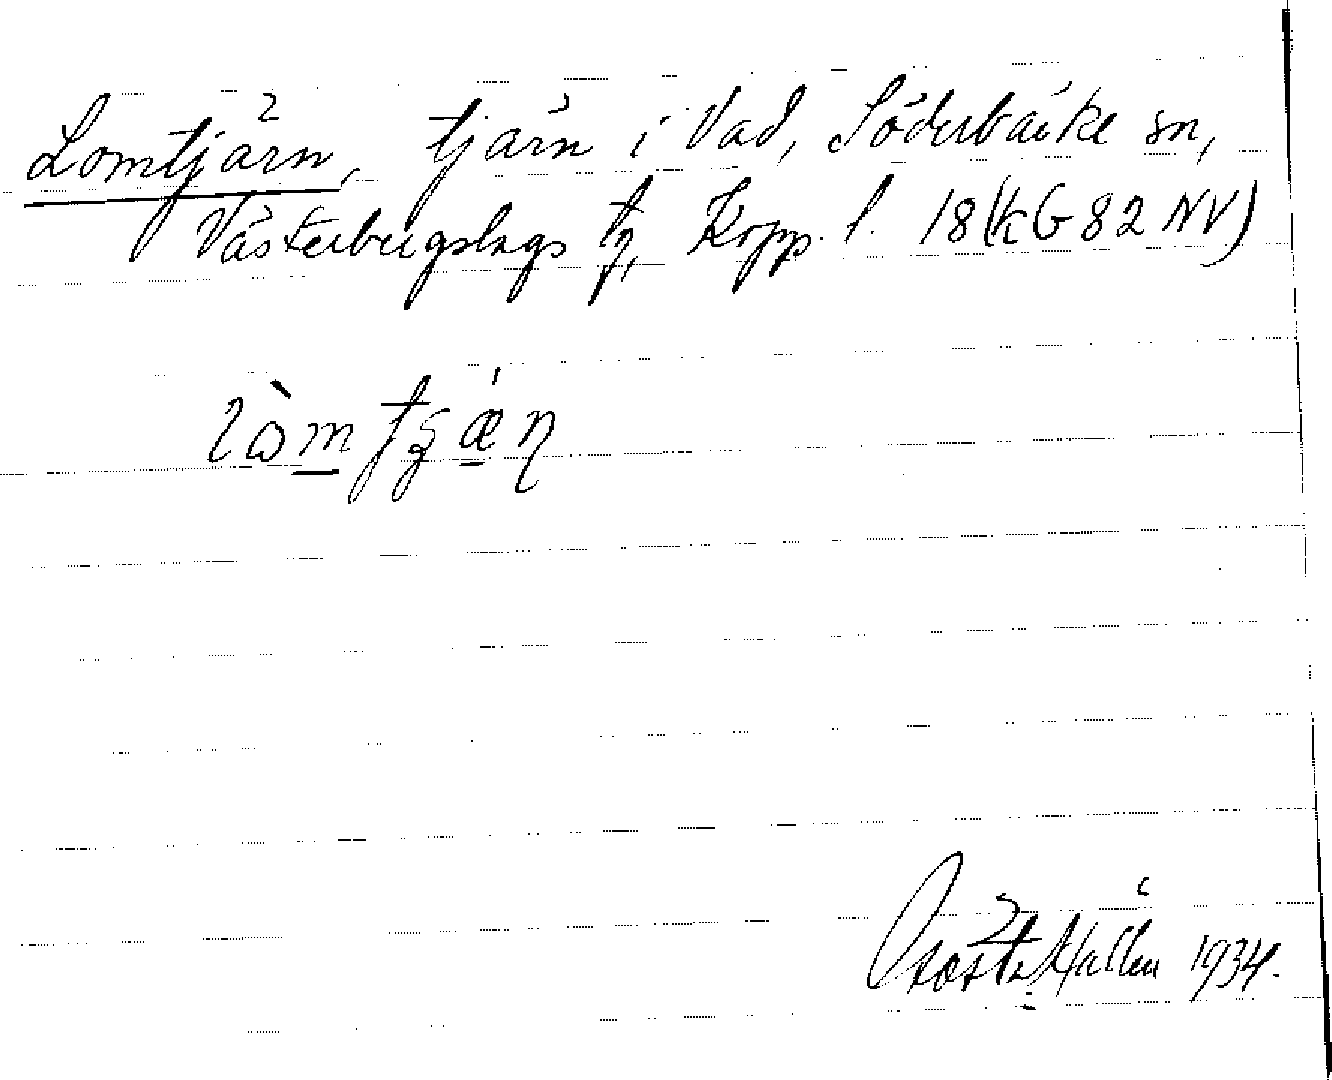 Lomtjärn, tjärn i Vad, Söderbärke sn,
Västerbergslags tg, Kopp. l. 18 (kG 82 NV)
Hallén 1934.